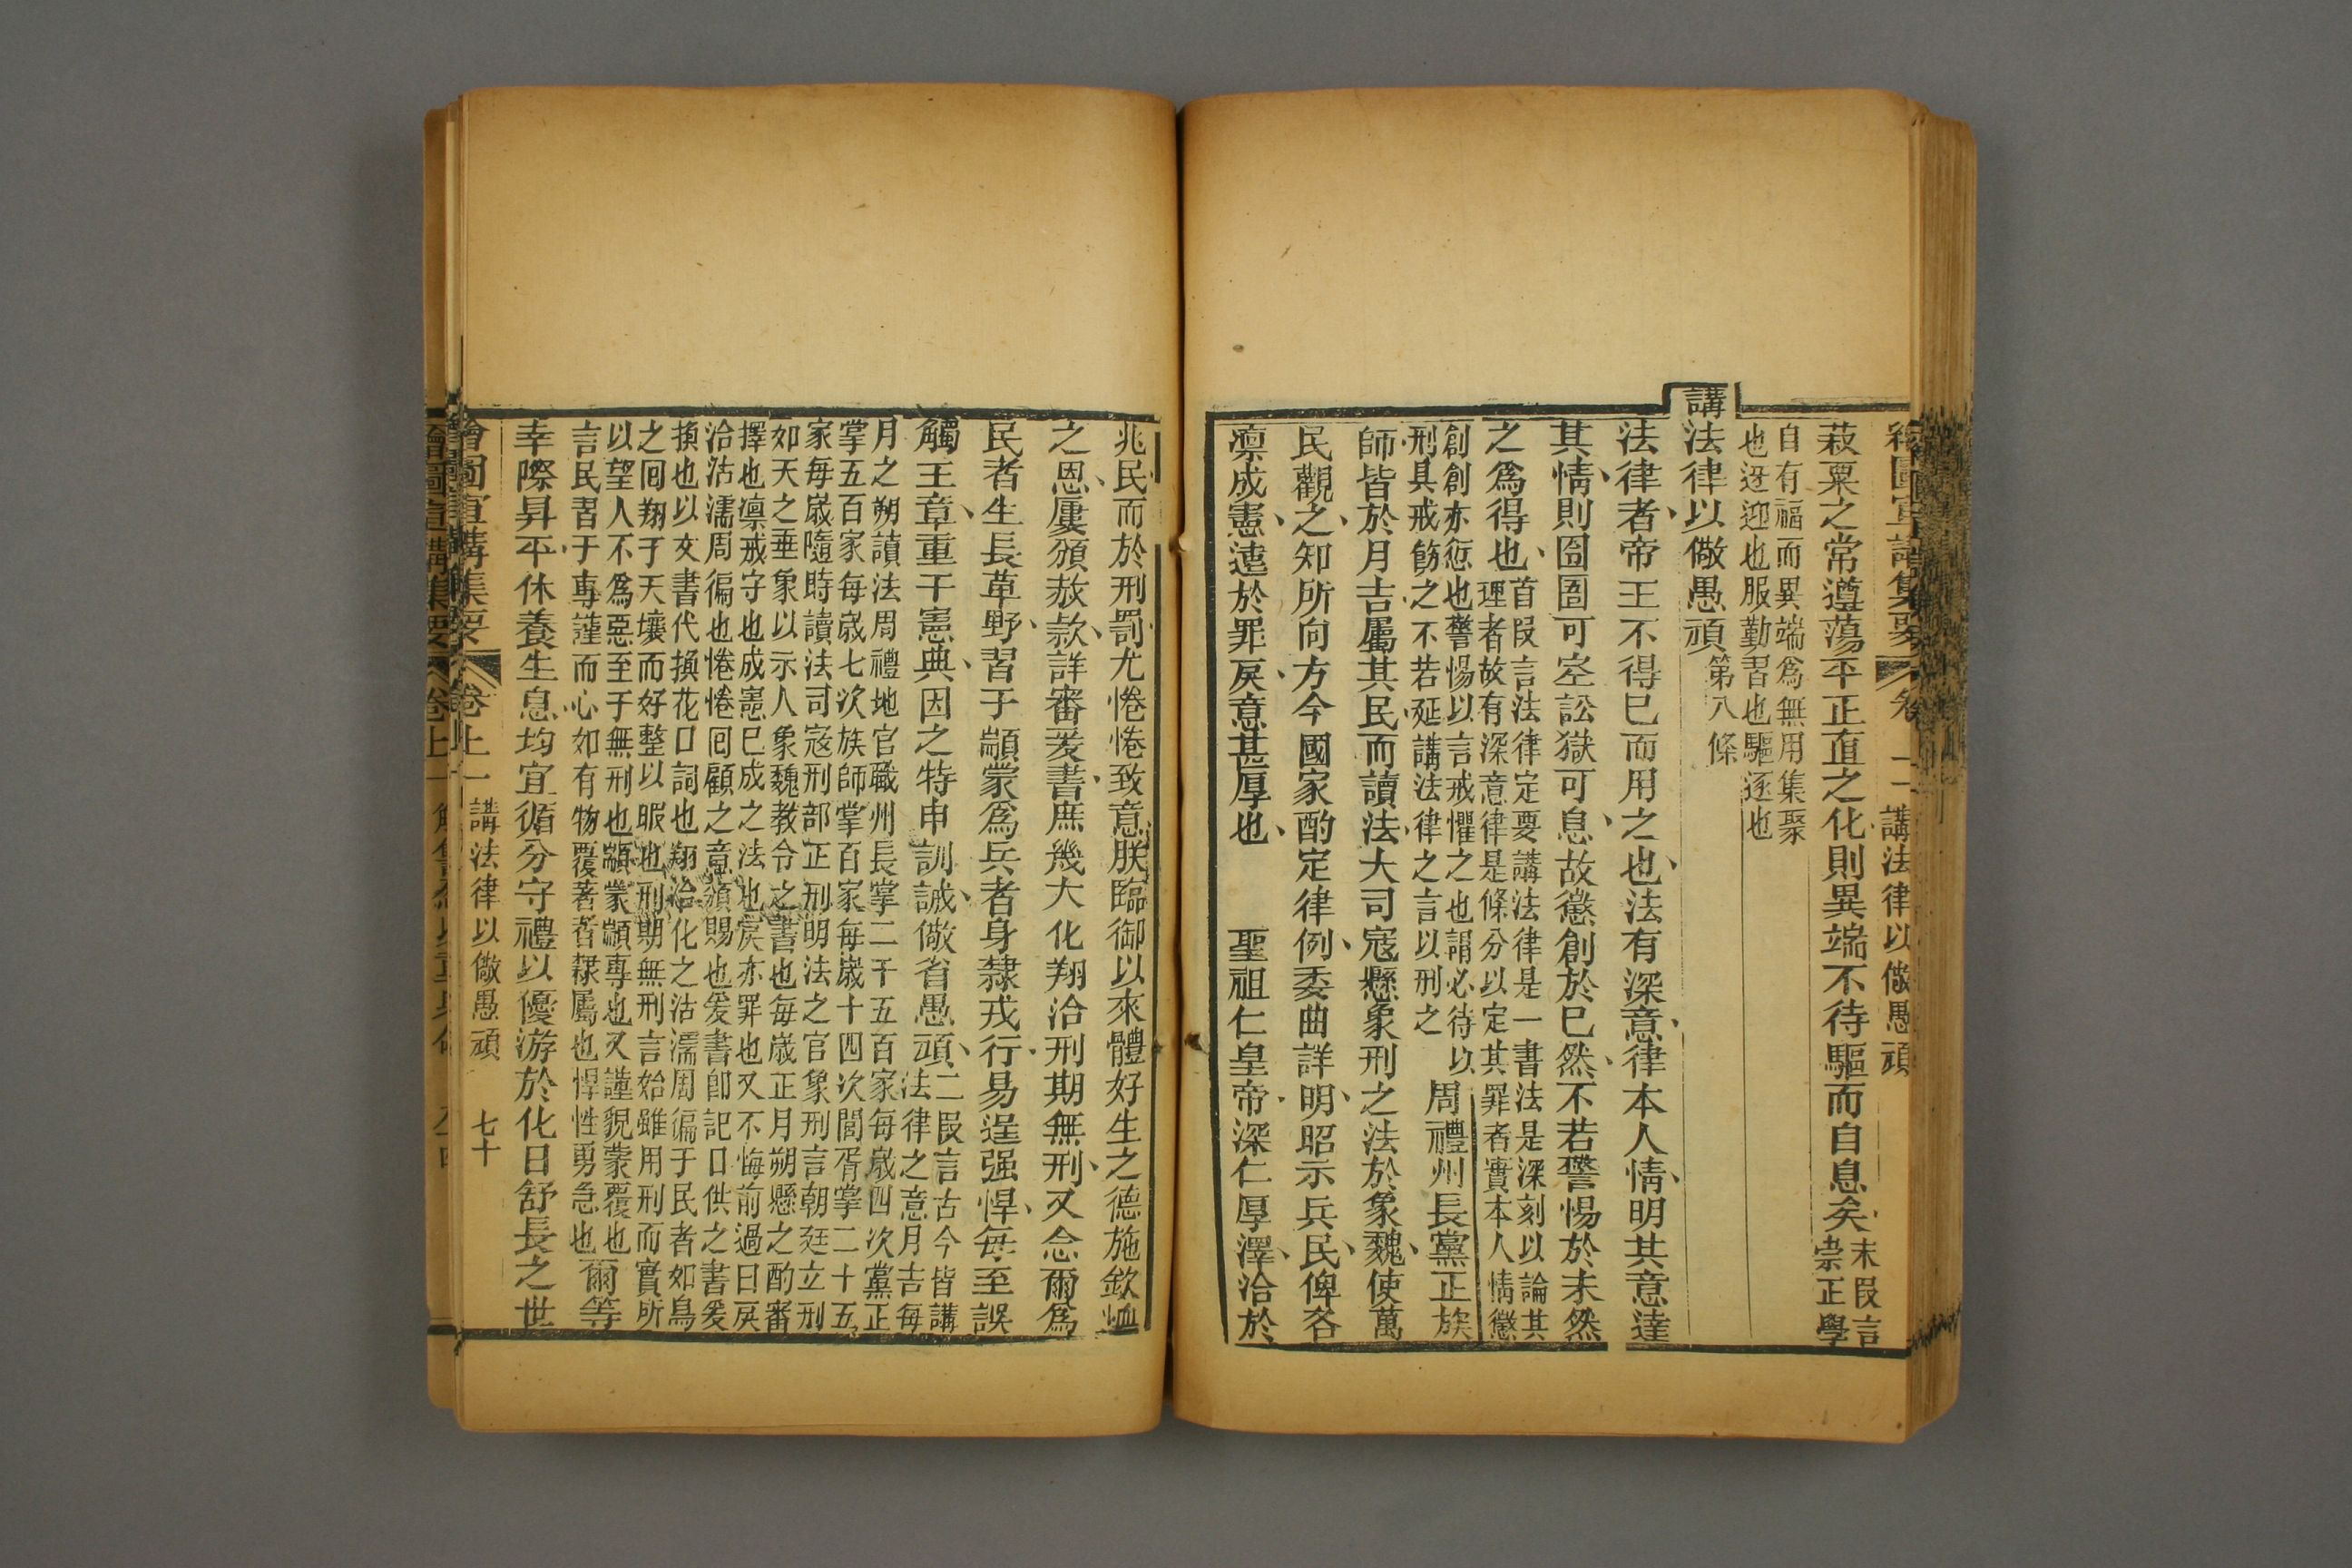 繪圖宣講集要 卷上一 講法律以儆愚頑
菽粟之常遵蕩平正直之化則異端不待驅而自息矣 末段言
崇正學
自有福而異端爲無用集聚
也迓迎也服勤習也驅逐也
講法律以儆愚頑 第八條
法律者帝王不得已而用之也法有深意律本人情明其意達
其情則囹圄可空訟獄可息故懲創於已然不若警惕於未然
之爲得也 首段言法律定要講法律是一書法是深刻以論其
理者故有深意律是條分以定其罪者實本人情懲
創創亦愆也警惕以言戒懼之也謂必待以
刑具戒飭之不若延講法律之言以刑之 周禮州長黨正族
師皆於月吉屬其民而讀法大司寇懸象刑之法於象魏使萬
民觀之知所向方今國家酌定律例委曲詳明昭示兵民俾各
凛成憲遠於罪戾意甚厚也 聖祖仁皇帝深仁厚澤洽於
兆民而於刑罰尤惓惓致意朕臨御以來體好生之德施欽恤
之恩屢頒赦款詳審爰書庶幾大化翔洽刑期無刑又念爾爲
民者生長草野習于顓蒙爲兵者身隸戎行易逞强悍每至誤
觸王章重干憲典因之特申訓誡儆省愚頑 二段言古今皆講
法律之意月吉每
月之朔讀法周禮地官職州長掌二千五百家每歲四次黨正
掌五百家每歲七次族師掌百家每歲十四次閭胥掌二十五
家每歲隨時讀法司寇刑部正刑明法之官象刑言朝廷立刑
如天之垂象以示人象魏教令之書也每歲正月朔懸之酌審
擇也凛戒守也成憲已成之法也戾亦罪也又不悔前過曰戾
洽沾濡周徧也惓惓囘顧之意頒賜也爰書卽記口供之書爰
換也以文書代換花口詞也翔洽化之沾濡周徧于民者如鳥
之囘翔于天壤而好整以暇也刑期無刑言始雖用刑而實所
以望人不爲惡至于無刑也顓蒙顓專也又謹貌蒙覆也
言民習于專謹而心如有物覆著者隸屬也悍性勇急也 爾等
幸際昇平休養生息均宜循分守禮以優游於化日舒長之世
繪圖宣講集要 卷上一 講法律以儆愚頑 七十
繪圖宣講集要 卷上一